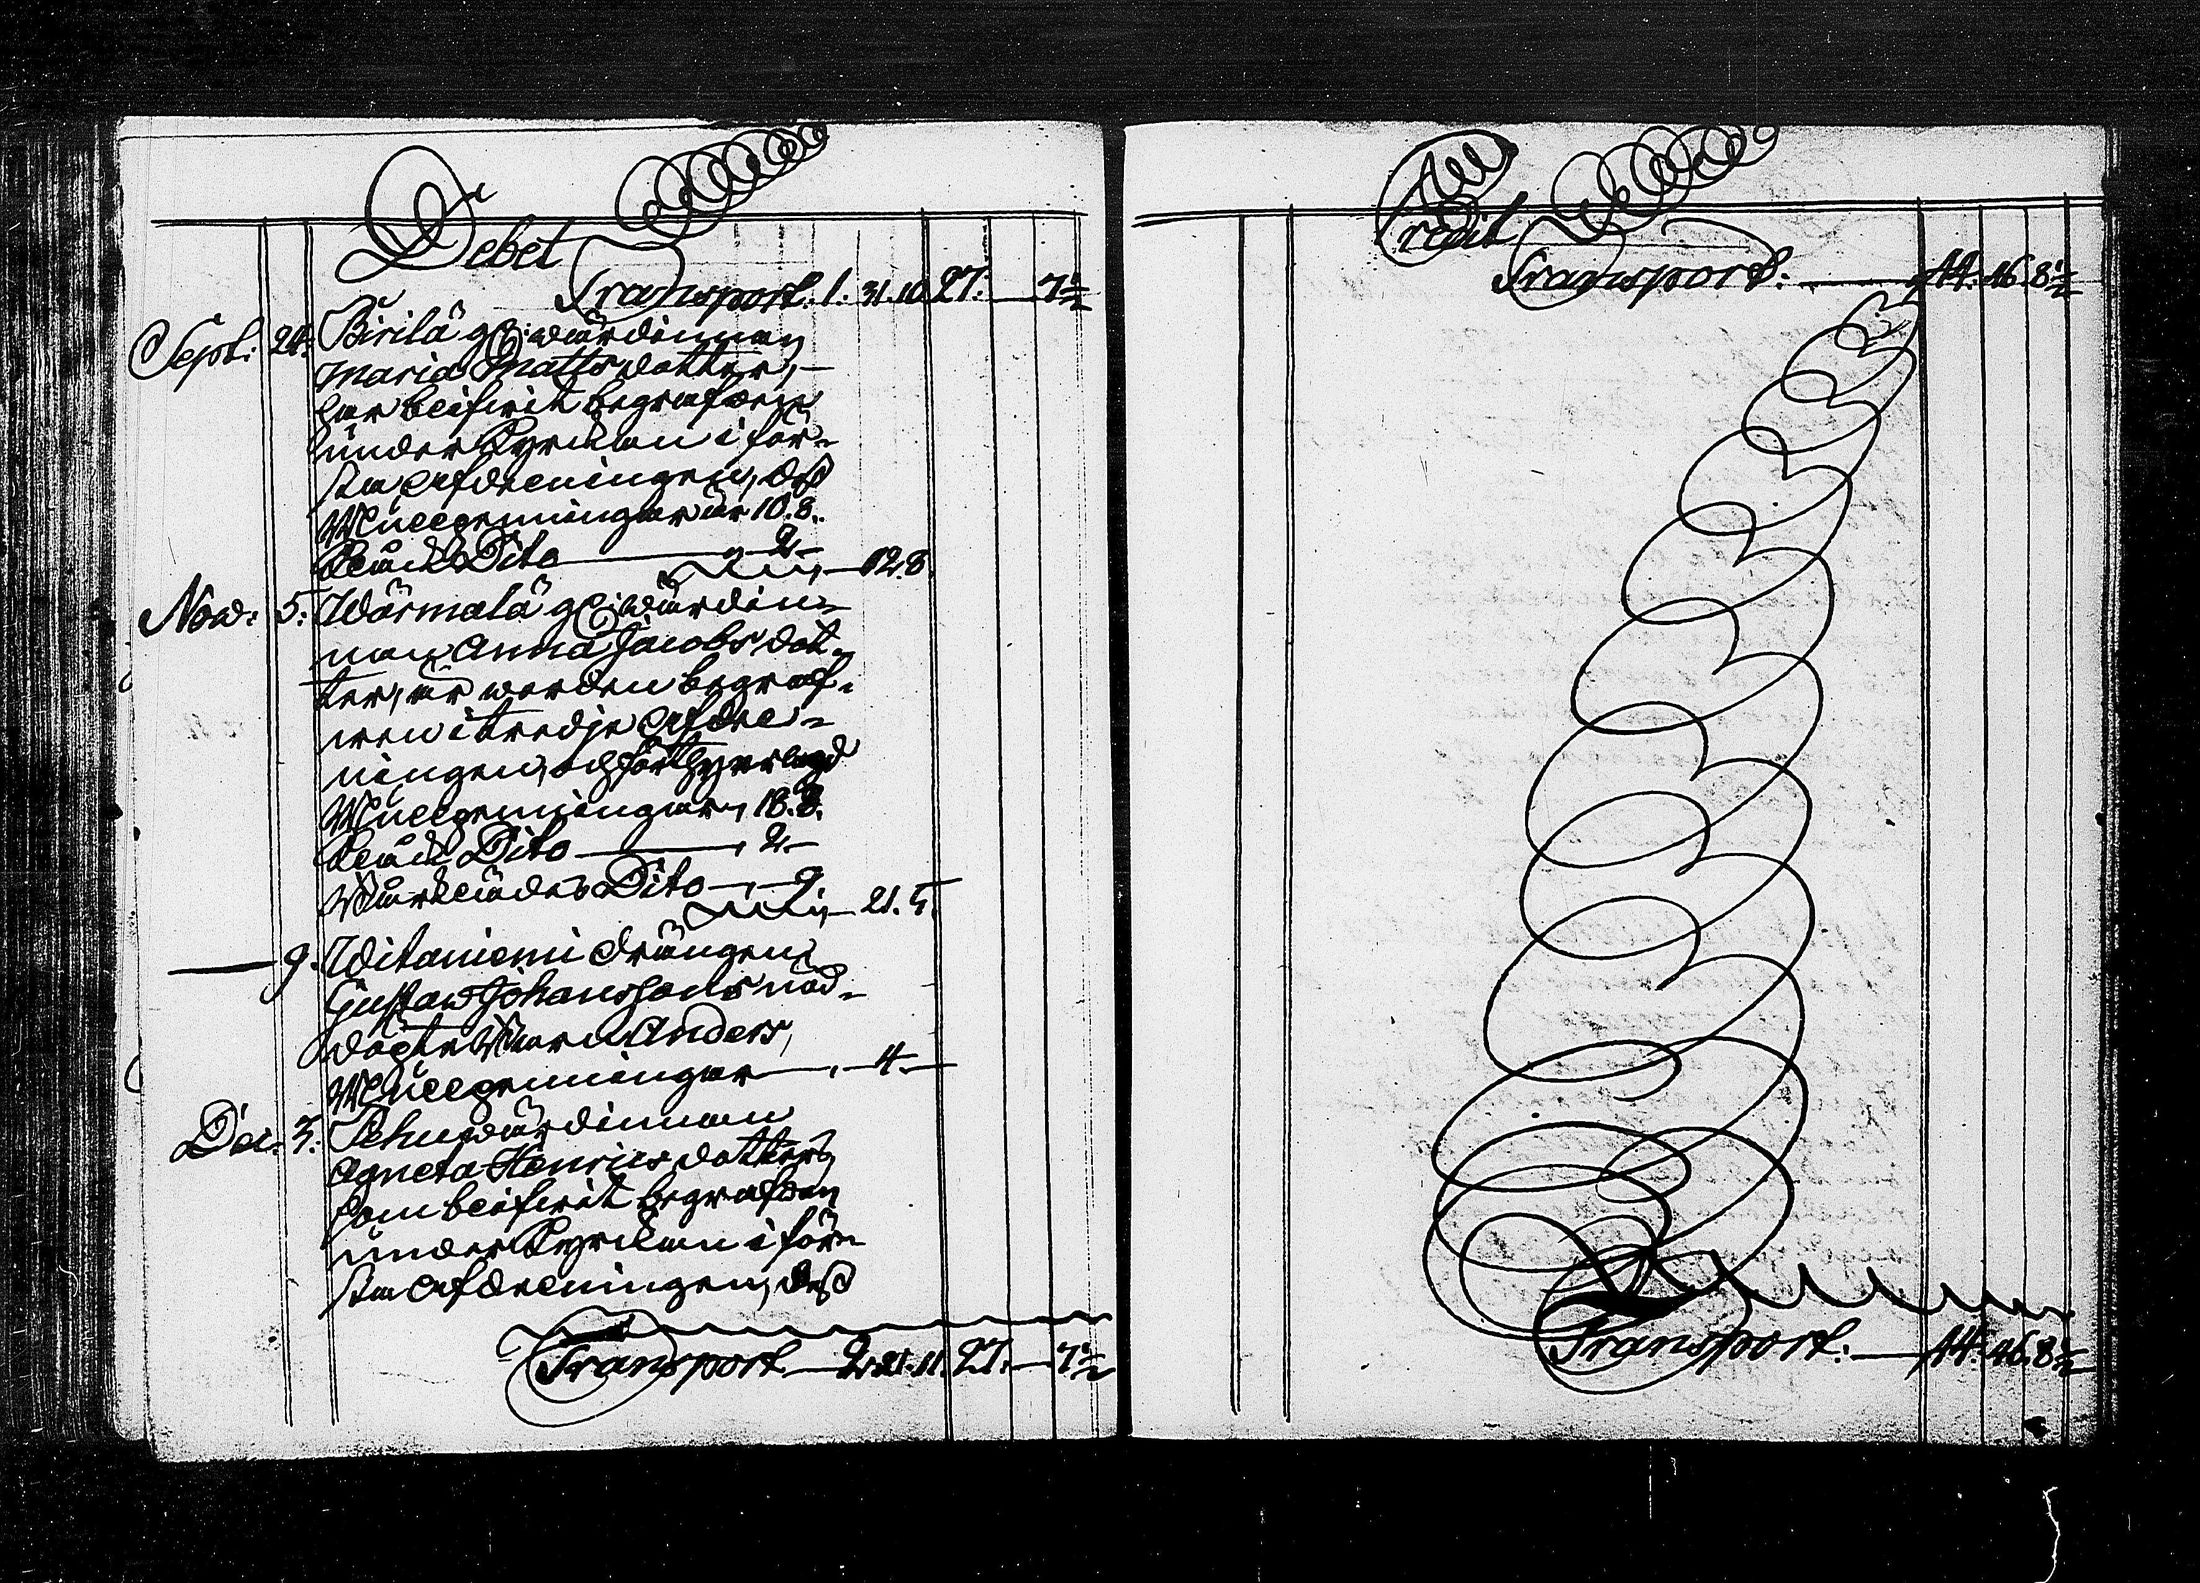 Debet
Transport. 1. 31. 10. 27. — 7½
Sept: 24. Birilä gl: wärdinnan
Maria Mattsdotter, —
har blifwit begrafwen
under Kyrckan i för-
sta afdelningen, dess
Mullpenningar är 10.8.
Dito — 2 —
12.8.
Now: 5: Wärmalä gl: wärdin-
nan Anna Jacobs dot-
ter, är worden begraf-
wen i tredje afdel-
ningen, och för
Mullpenningar, 18.8.
Dito — 2 —
Dito — 9.
21. 5.
— 9. Witaniemi drängens
Gustaw Johanssons nöd-
döpte Barn Anders,
Mullpenningar — 4. —
Dec. 3: wärdinnan
Agneta Henrics dotter,
som blifwit begrafwen
under Kyrckan i för-
sta afdelningen, dess
Transport — 2. 21. 11. 27. — 7½
Credit
Transport: — 44. 16. 8½
Transport: — 44. 16. 8½